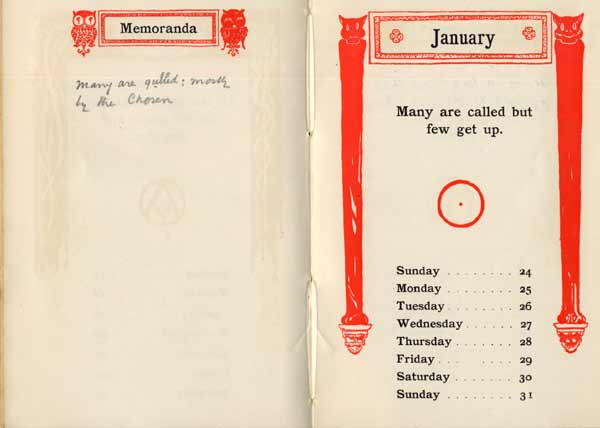 Memoranda
Many are gulled: mostly
by the Chosen
January
Many are called but
few get up.
Sunday . . . . . . . . 24
Monday . . . . . . . . 25
Tuesday . . . . . . . . 26
Wednesday . . . . . . 27
Thursday . . . . . . . 28
Friday . . . . . . 29
Saturday . . . . . . . 30
Sunday . . . . . . . . 31